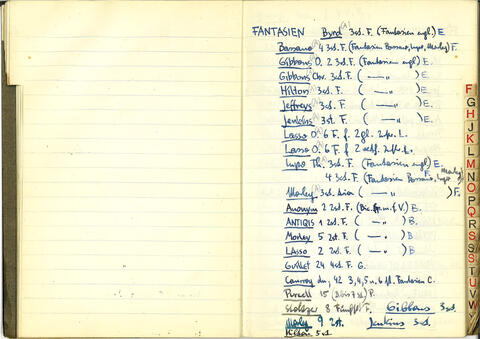 FANTASIEN Byrd 3st. F. (Fantasien engl.) E
Bassano 4 3st. F. (Fantasien Bassano, Lupo, Morley) F.
Gibbons O. 2 3st. F. (Fantasien engl) E.
Gibbons Chr. 3st. F. ( — „ — ) E.
Hilton 3st. F. ( — „ — ) E.
Jeffreys 3st. F. ( — „ — ) E.
Jenkins 3st. F. ( — „ — ) E.
Lasso O. 6 F. f. 2 gl. L.
Lasso O. 6 F. f. 2 L.
Lupo Th. 3st. F. (Fantasien engl) E.
4 3st. F. (Fantasien Bassano, Lupo Morley) F.
Morley 3st. ( — „ — ) F.
Anonym 2 2st. F. E.
ANTIQIS 1 2st. F. ( — „ — ) B
Morley 5 2st. F. ( — „ — ) B
LAsso 2 2st. F. ( — „ — ) B
Guillet 24 4st. F. G.
42 3, 4, 5 u. 6 st. Fantasien C.
Purcell 15 P.
Stoltzer 8 F. Gibbons 3st.
Morley 9 2st. Jenkins 3st.
5st
F
G
H
J
K
L
M
N
O
P
Q
R
S
S
T
U
V
W